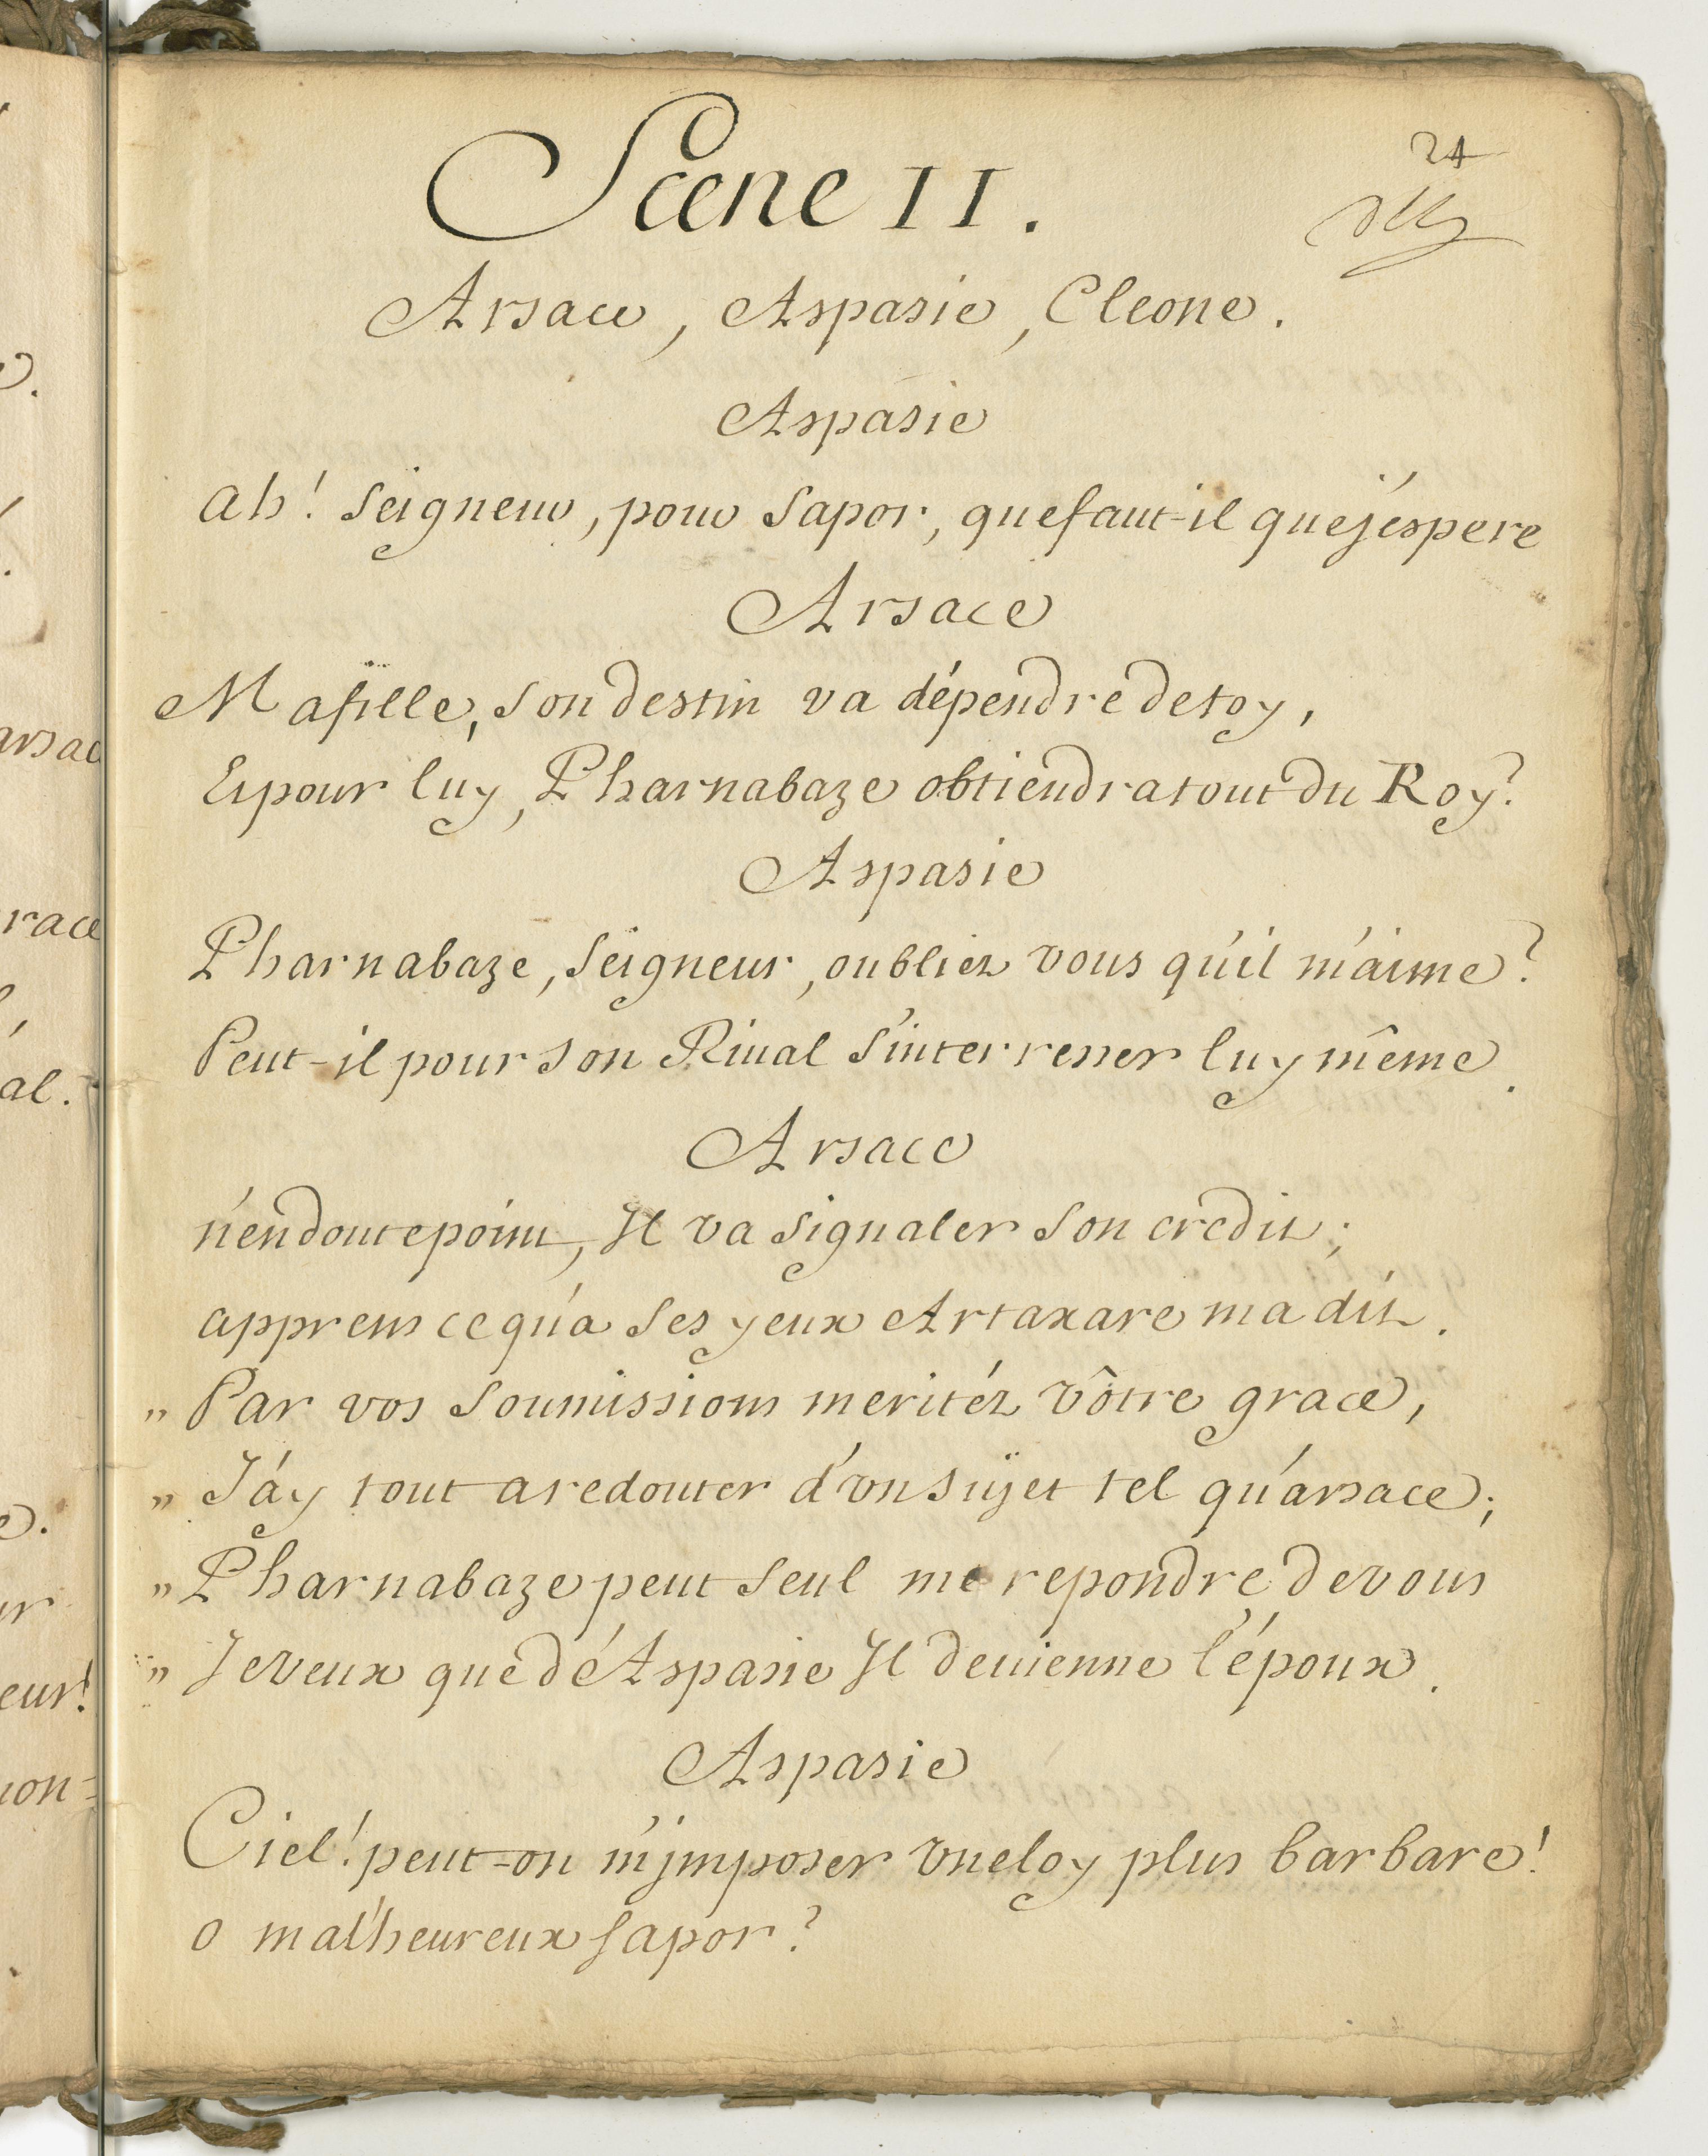 24
Scene II.
Arsace, Aspasie, Cleone.
Aspasie
Ah! Seigneur, pour Sapor, que faut-il que j'éspere
Arsace
Ma fille, son destin va dépendre de toy,
Et pour luy, Pharnabaze obtiendra tout du Roy?
Aspasie
Pharnabaze, Seigneur, oubliez vous qu'il m'aime?
Peut-il pour son Riual s'interresser luy même.
Arsace
n'en doute point, Il va signaler son credit;
apprens ce qu'a ses yeux Artaxare m'a dit.
„ Par vos soumissions meritéz vôtre grace,
„ J'ay tout a redouter d'vn sujet tel qu'arsace;
„ Pharnabaze peut seul me repondre de vous
„ Je veux que d'Aspasie Il deuienne l'époux.
Aspasie
Ciel! peut-on m'jmposer vne loy plus barbare!
o malheureux sapor?
arsac
race
al.
e.
ur
eur!